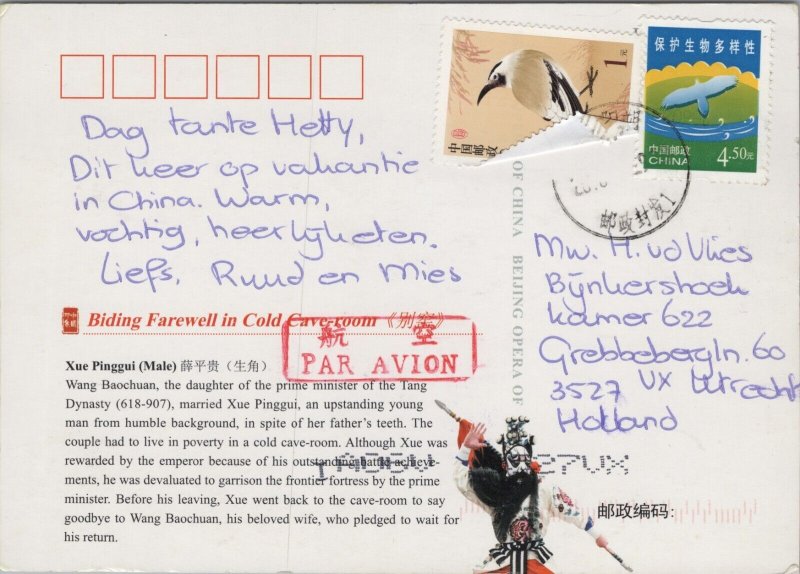 1元
中国邮政
保护生物多样性
中国邮政
CHINA
4.50元
邮政封发1
Dag tante Hetty,
Dit keer op vakantie
in China. Warm,
vochtig, heerlijk eten.
Liefs, Ruud en Mies
OF CHINA BEIJING OPERA OF
Mw. H. vd Vlies
Bijnkershoek
kamer 622
Grebbebergln. 60
3527 VX Utrecht
Holland
Biding Farewell in Cold Cave-room《别窑》
航空
PAR AVION
Xue Pinggui (Male) 薛平贵（生角）
Wang Baochuan, the daughter of the prime minister of the Tang
Dynasty (618-907), married Xue Pinggui, an upstanding young
man from humble background, in spite of her father's teeth. The
couple had to live in poverty in a cold cave-room. Although Xue was
rewarded by the emperor because of his outstanding battle achieve-
ments, he was devaluated to garrison the frontier fortress by the prime
minister. Before his leaving, Xue went back to the cave-room to say
goodbye to Wang Baochuan, his beloved wife, who pledged to wait for
his return.
邮政编码：